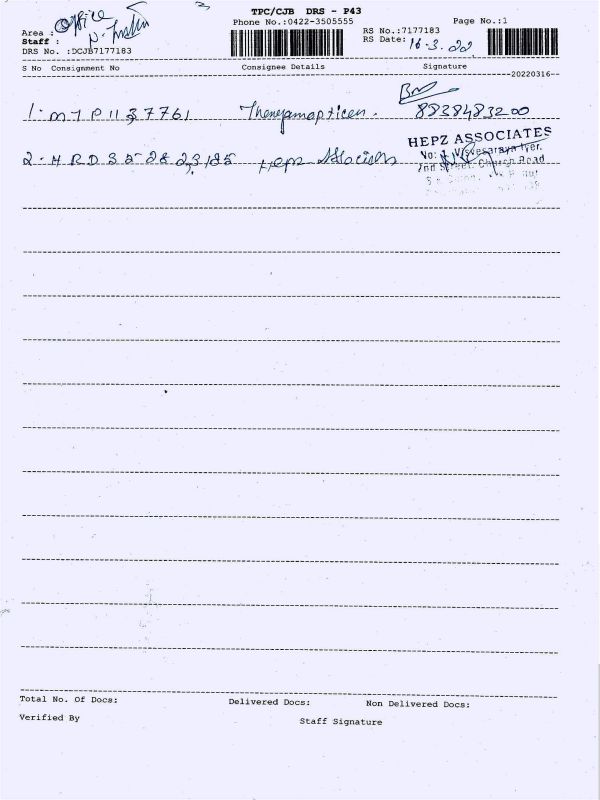 TPC/CJB DRS - P43
Phone No.:0422-3505555
Page No.:1
Area : Office
Staff :
RS No.:7177183
RS Date: 16-3-22
DRS No. :DCJB7177183
S No Consignment No Consignee Details Signature
--20220316--
1. MTP 1137761
8838483200
HEPZ ASSOCIATES
No: 1, Visvesaraya Iyer,
2nd Street, Church Road
2. HRD Hepz Associates
Total No. Of Docs: Delivered Docs: Non Delivered Docs:
Verified By Staff Signature